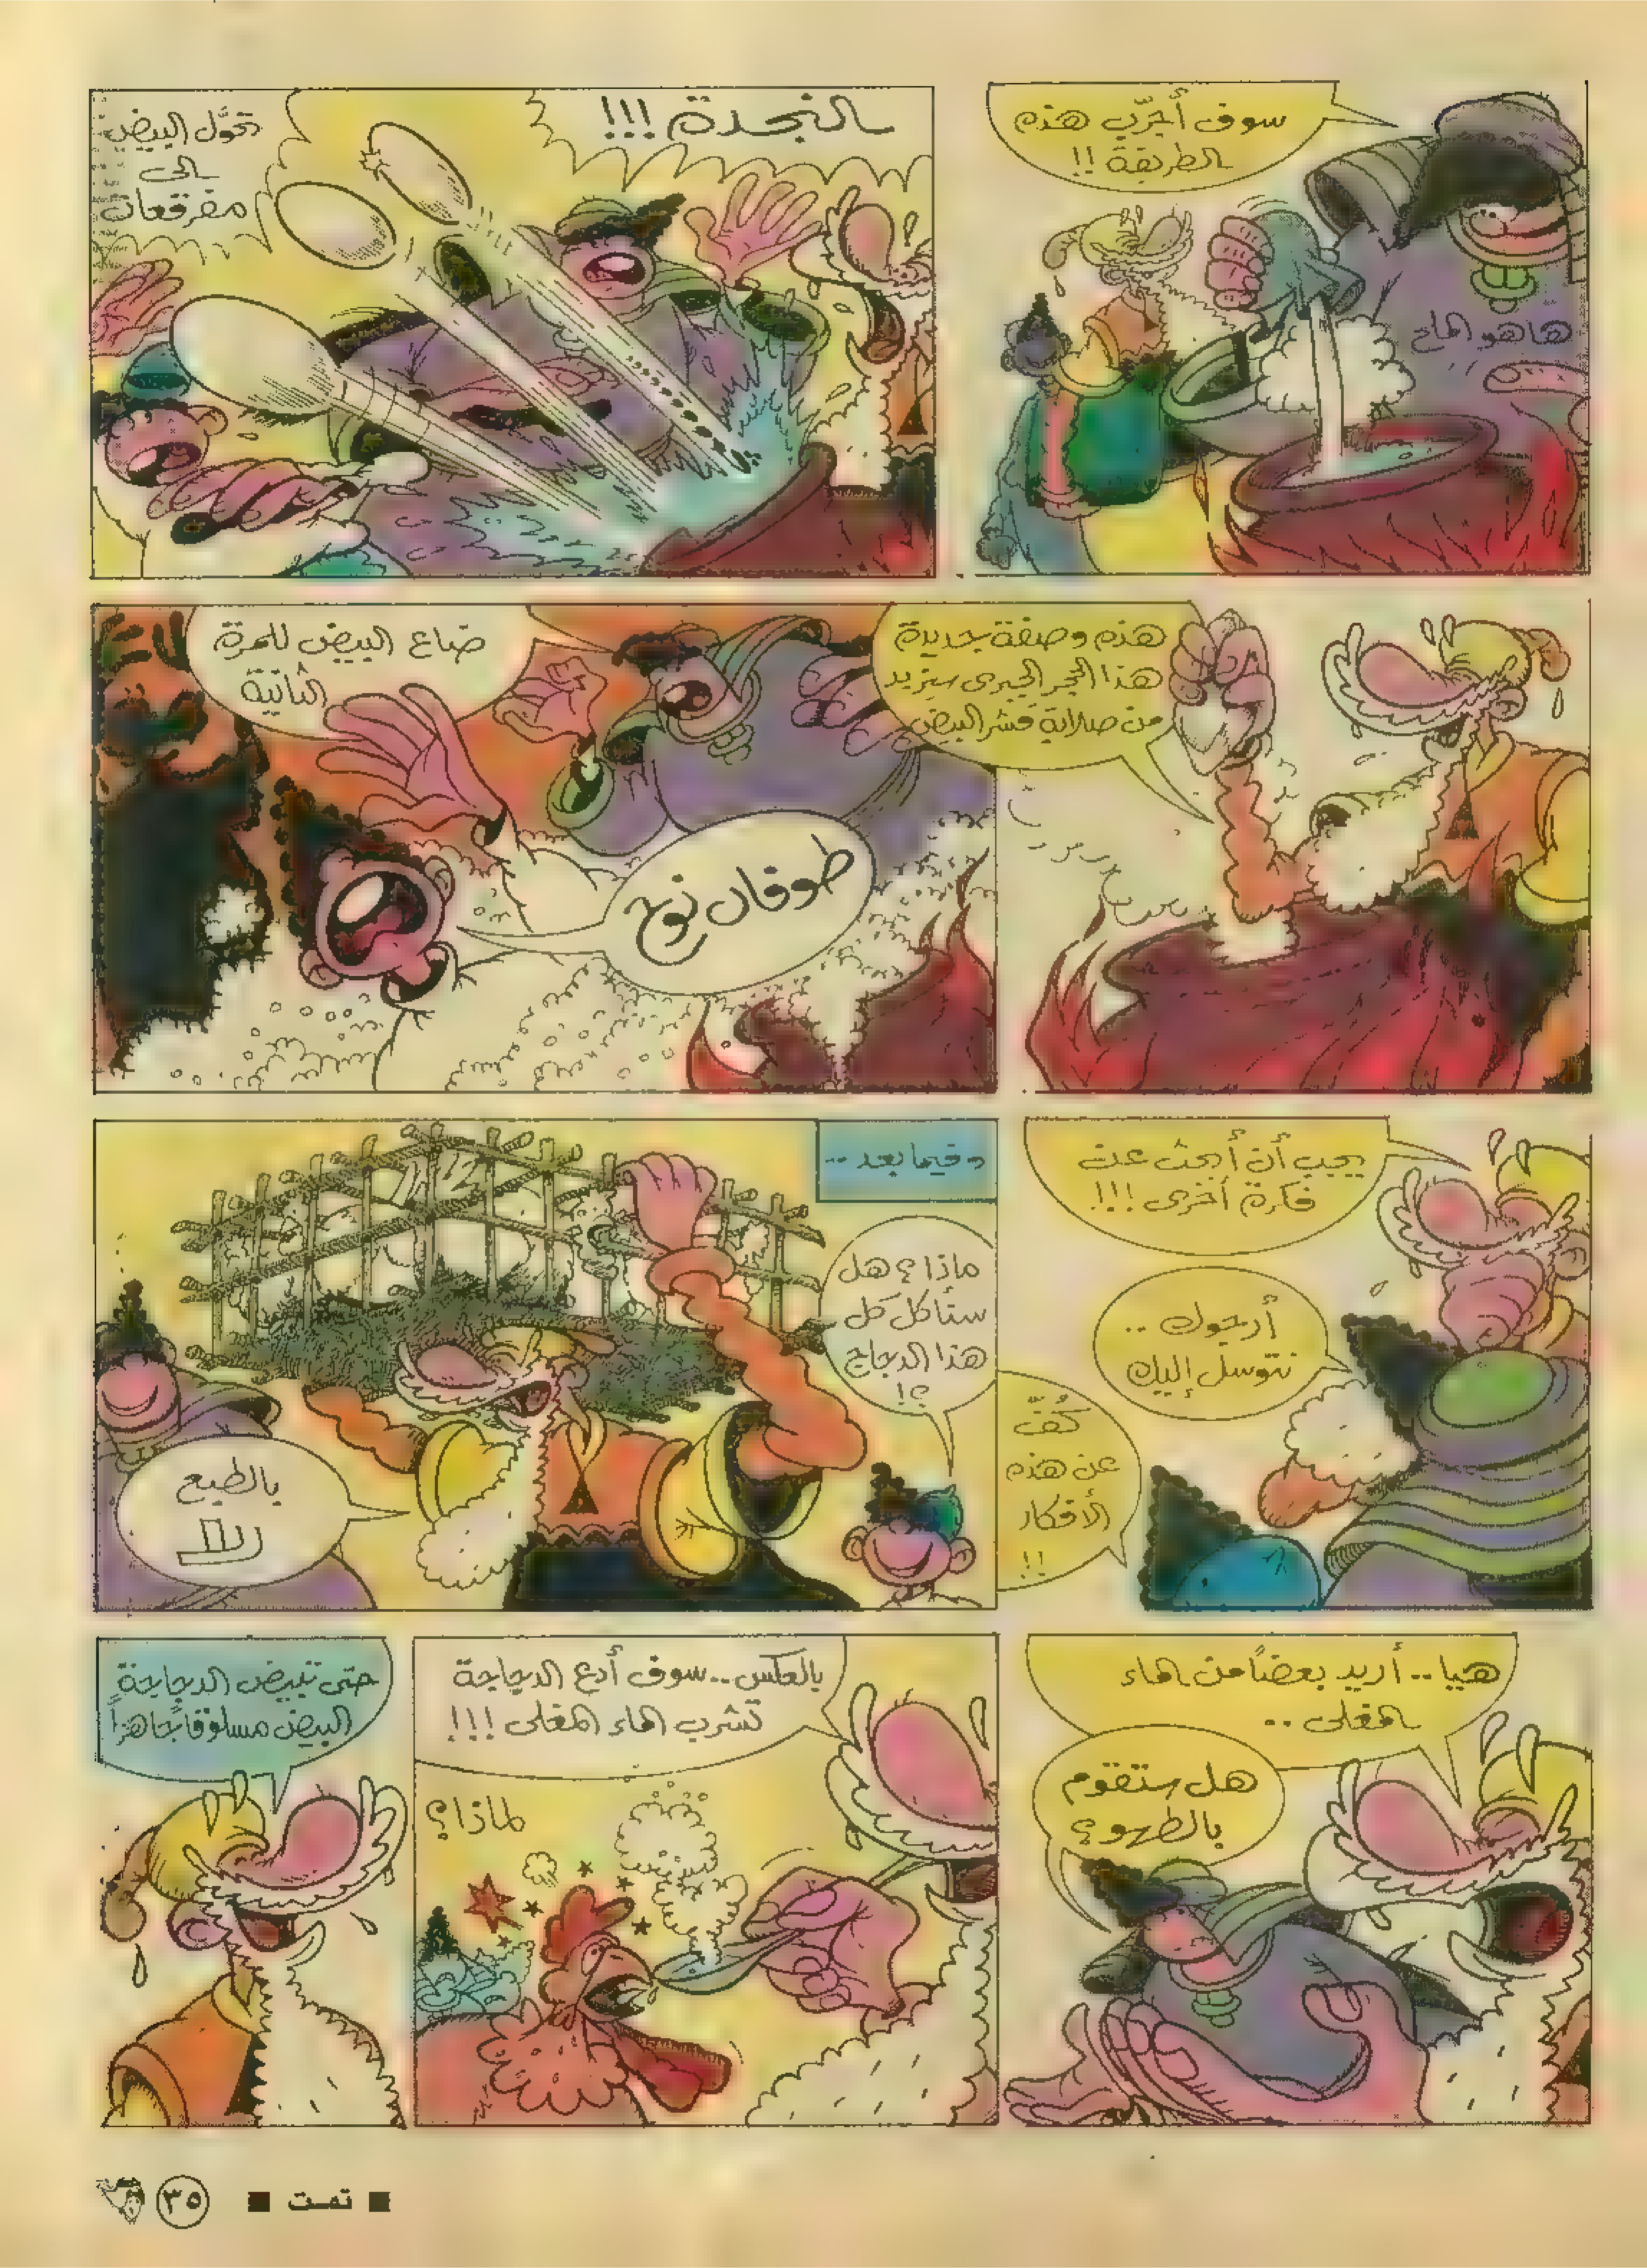 سوف أجرّب هذه
الطريقة !!
هاهو الملح
النجدة !!!
تحوَّل البيض
الى
مفرقعات
هذه وصفة جديدة
هذا الحجر الجيرى سيزيد
من صلابة قشر البيض
ضاع البيض للمرة
الثانية
طوفان نوح
يجب أن أبحث عن
فكرة أخرى !!!
أرجوك ..
نتوسل إليك
كُفّ
عن هذه
الأفكار
!!
وفيما بعد ..
ماذا؟ هل
ستأكل كل
هذا الدجاج
؟!
بالطبع
لا
هيا .. أريد بعضاً من الماء
المغلى ..
هل ستقوم
بالطهو؟
بالعكس .. سوف أدع الدجاجة
تشرب الماء المغلى !!!
لماذا؟
حتى تبيض الدجاجة
البيض مسلوقاً جاهزاً
■ تمت ■
٣٥